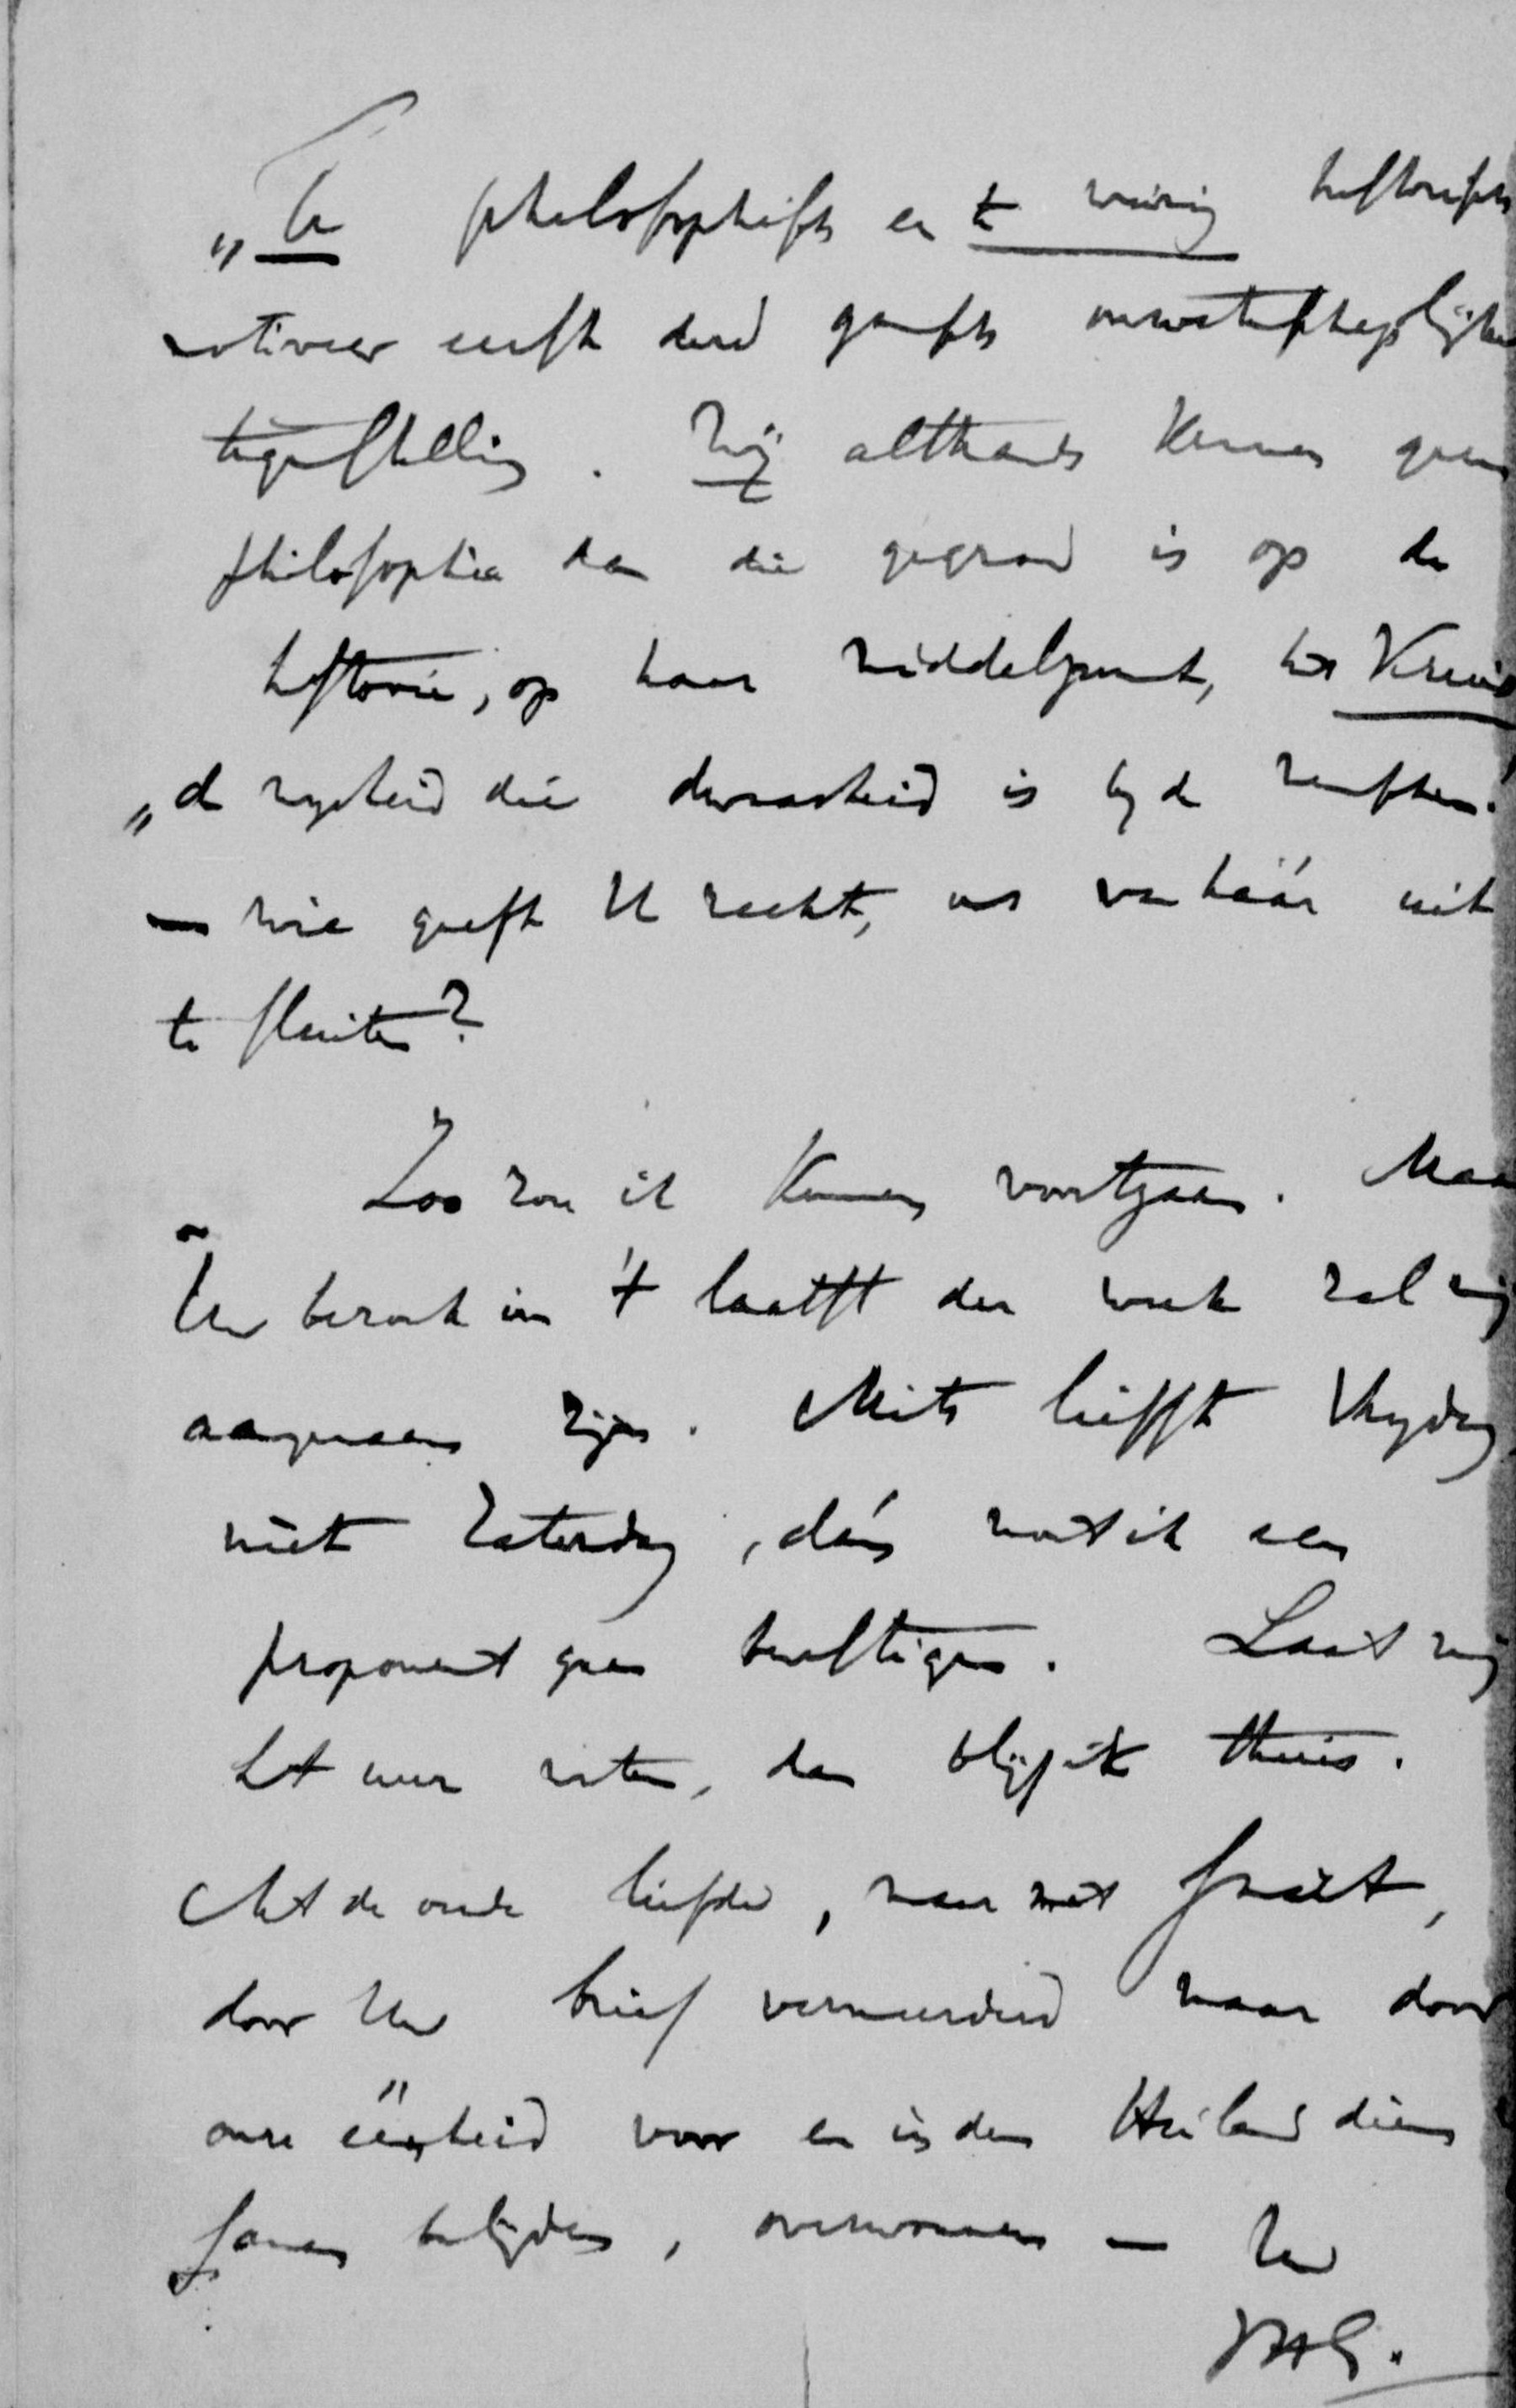 „Te philosophisch en te weinig historisch
motiveer eerst deed gansch onwetenschappelijke
tegenstelling. Wij althans kennen geene
philosophie dan die gegrond is op de
historie, op haar middelpunt, het Kruis
„de wysheid die dwaasheid is by de menschen."
— wie geeft U recht, ons van háár uit
te sluiten?
Zoo zou ik kunnen voortgaan. Maar
Uw bezoek in 't laatst der week zal mij
aangenaam zijn. Mits liefst Vrydag
niet Zaterdag, dán moet ik een
proponent gaan bevestigen. Laat mij
het uur weten, dan blijf ik thuis.
Met de oude liefde, maar met smart,
door Uw brief vermeerderd maar door
onze éénheid voor en in den Heiland dien
samen belijden, overwonnen — Uw
JHG.